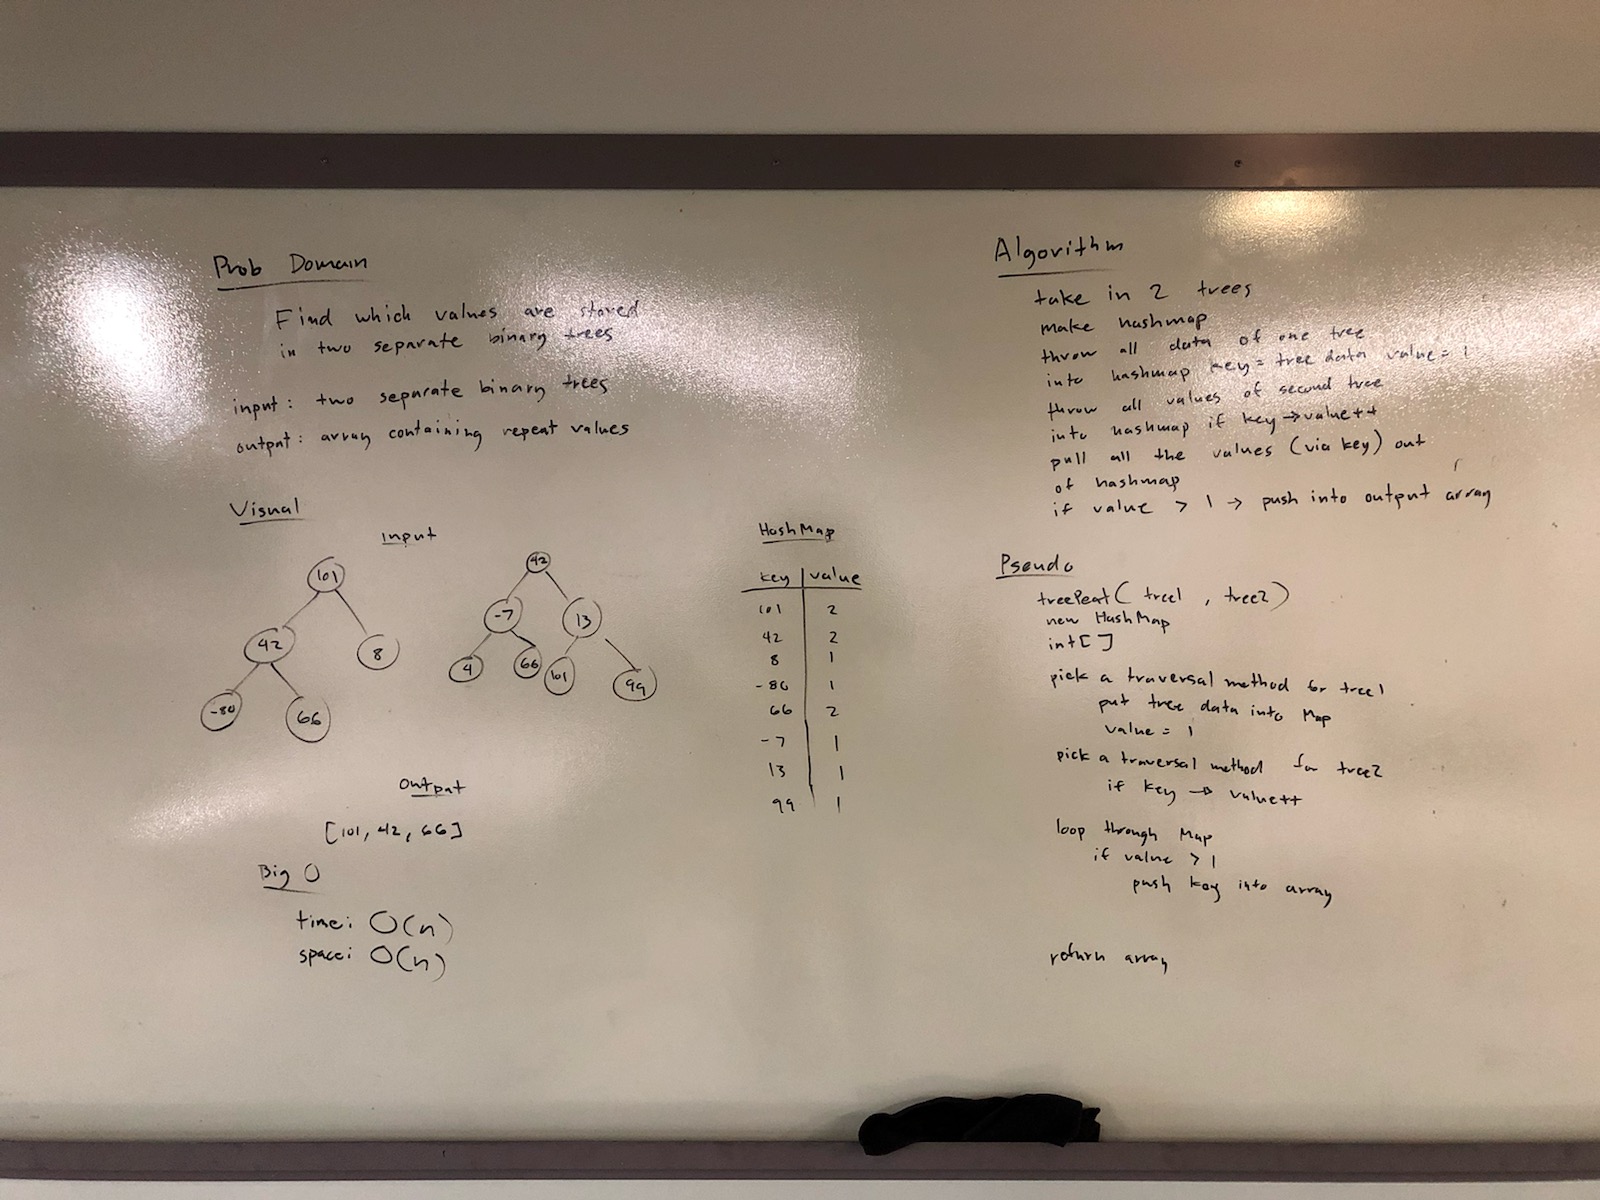 Prob Domain
Find which values are stored
in two separate binary trees
input: two separate binary trees
output: array containing repeat values
Visual
input
101
42
8
-80
66
42
-7
13
4
66
101
99
output
[101, 42, 66]
Big O
time: O(n)
space: O(n)
HashMap
key | value
101 | 2
42 | 2
8 | 1
-80 | 1
66 | 2
-7 | 1
13 | 1
99 | 1
Algorithm
take in 2 trees
make hashmap
throw all data of one tree
into hashmap key = tree data value = 1
throw all values of second tree
into hashmap if key → value++
pull all the values (via key) out
of hashmap
if value > 1 → push into output array
Pseudo
treePeat( tree1 , tree2 )
new HashMap
int[]
pick a traversal method for tree1
put tree data into Map
value = 1
pick a traversal method for tree2
if key → value++
loop through Map
if value > 1
push key into array
return array